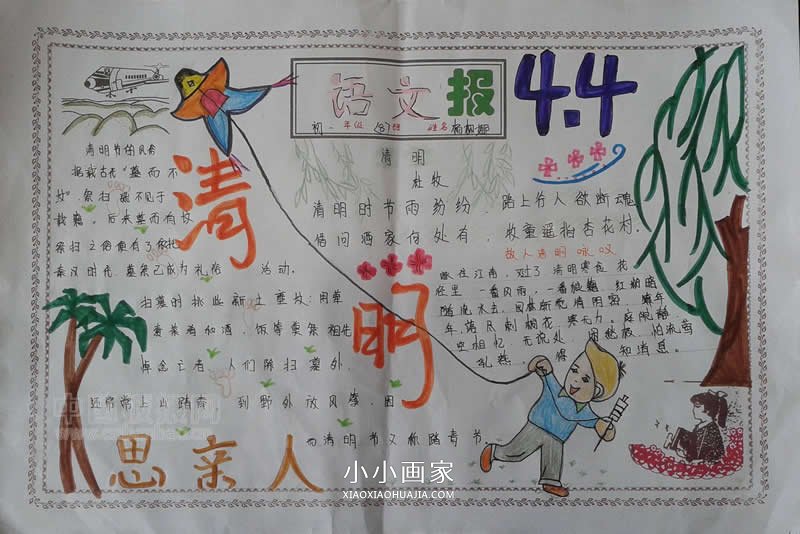 语文报
4.4
初一年级 班 姓名
清明
思亲人
清明节的风俗
据载古代"墓而不
坟"，祭扫 不见于
载籍。后来墓而有坟
祭扫之俗便有了依托
秦汉时代，墓祭已成为礼俗 活动。
扫墓时
和酒，饭
悼念亡者 人们除扫墓外，
还常常上山踏青 到野外放风筝，因
而清明节又称踏青节
清明
杜牧
清明时节雨纷纷，路上行人欲断魂
借问酒家何处有，牧童遥指杏花村。
故人清明咏叹
江南，过了清明寒食 花
径里 一番风雨，一番狼藉 红粉暗
随流水去，园林渐觉清阴密 年
年落尽刺桐花，寒无力。庭院静
空相忆 无说处 闲愁极 怕流莺
乳燕 得 知消息。
中国板报网
小小画家
XIAOXIAOHUAJIA.COM